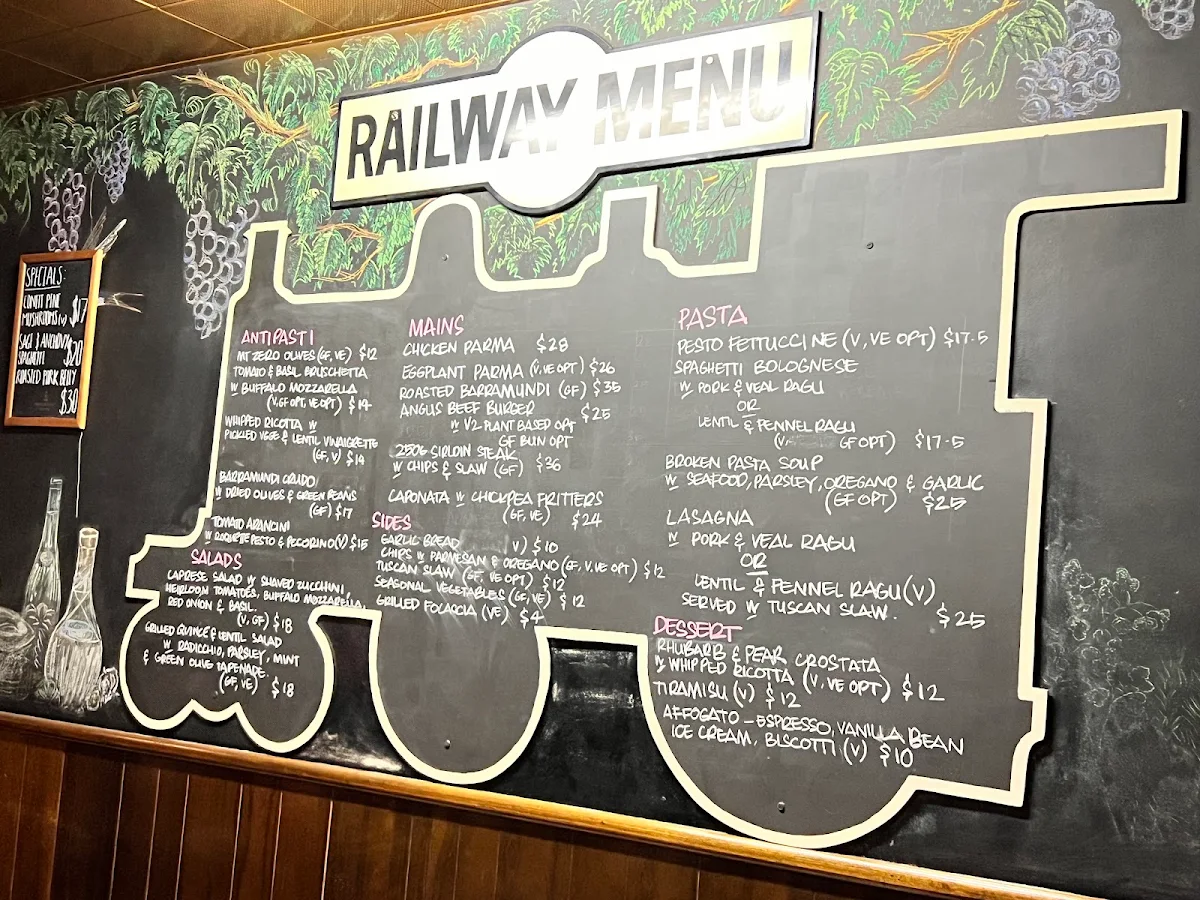 RAILWAY MENU
SPECIALS:
CONFIT PINE
MUSHROOMS (V) $17
SAGE & ANCHOVY
SPAGHETTI $20
ROASTED PORK BELLY
$30
ANTIPASTI
MT ZERO OLIVES (GF, VE) $12
TOMATO & BASIL BRUSCHETTA
W BUFFALO MOZZARELLA
(V, GF OPT, VE OPT) $14
WHIPPED RICOTTA W
PICKLED VEGE & LENTIL VINAIGRETTE
(GF, V) $14
BARRAMUNDI CRUDO
W DRIED OLIVES & GREEN BEANS
(GF) $17
TOMATO ARANCINI
W ROQUETTE PESTO & PECORINO (V) $15
SALADS
CAPRESE SALAD W SHAVED ZUCCHINI,
HEIRLOOM TOMATOES, BUFFALO MOZZARELLA,
RED ONION & BASIL.
(V, GF) $18
GRILLED QUINCE & LENTIL SALAD
W RADICCHIO, PARSLEY, MINT
& GREEN OLIVE TAPENADE.
(GF, VE) $18
MAINS
CHICKEN PARMA $28
EGGPLANT PARMA (V, VE OPT) $26
ROASTED BARRAMUNDI (GF) $35
ANGUS BEEF BURGER $25
W V2 PLANT BASED OPT
GF BUN OPT
250G SIRLOIN STEAK
W CHIPS & SLAW (GF) $36
CAPONATA W CHICKPEA FRITTERS
(GF, VE) $24
SIDES
GARLIC BREAD V) $10
CHIPS W PARMESAN & OREGANO (GF, V, VE OPT) $12
TUSCAN SLAW (GF, VE OPT) $12
SEASONAL VEGETABLES (GF, VE) $12
GRILLED FOCACCIA (VE) $4
PASTA
PESTO FETTUCCINE (V, VE OPT) $17.5
SPAGHETTI BOLOGNESE
W PORK & VEAL RAGU
OR
LENTIL & FENNEL RAGU
(V, GF OPT) $17.5
BROKEN PASTA SOUP
W SEAFOOD, PARSLEY, OREGANO & GARLIC
(GF OPT) $25
LASAGNA
W PORK & VEAL RAGU
OR
LENTIL & FENNEL RAGU (V)
SERVED W TUSCAN SLAW. $25
DESSERT
RHUBARB & PEAR CROSTATA
W WHIPPED RICOTTA (V, VE OPT) $12
TIRAMISU (V) $12
AFFOGATO - ESPRESSO, VANILLA BEAN
ICE CREAM, BISCOTTI (V) $10